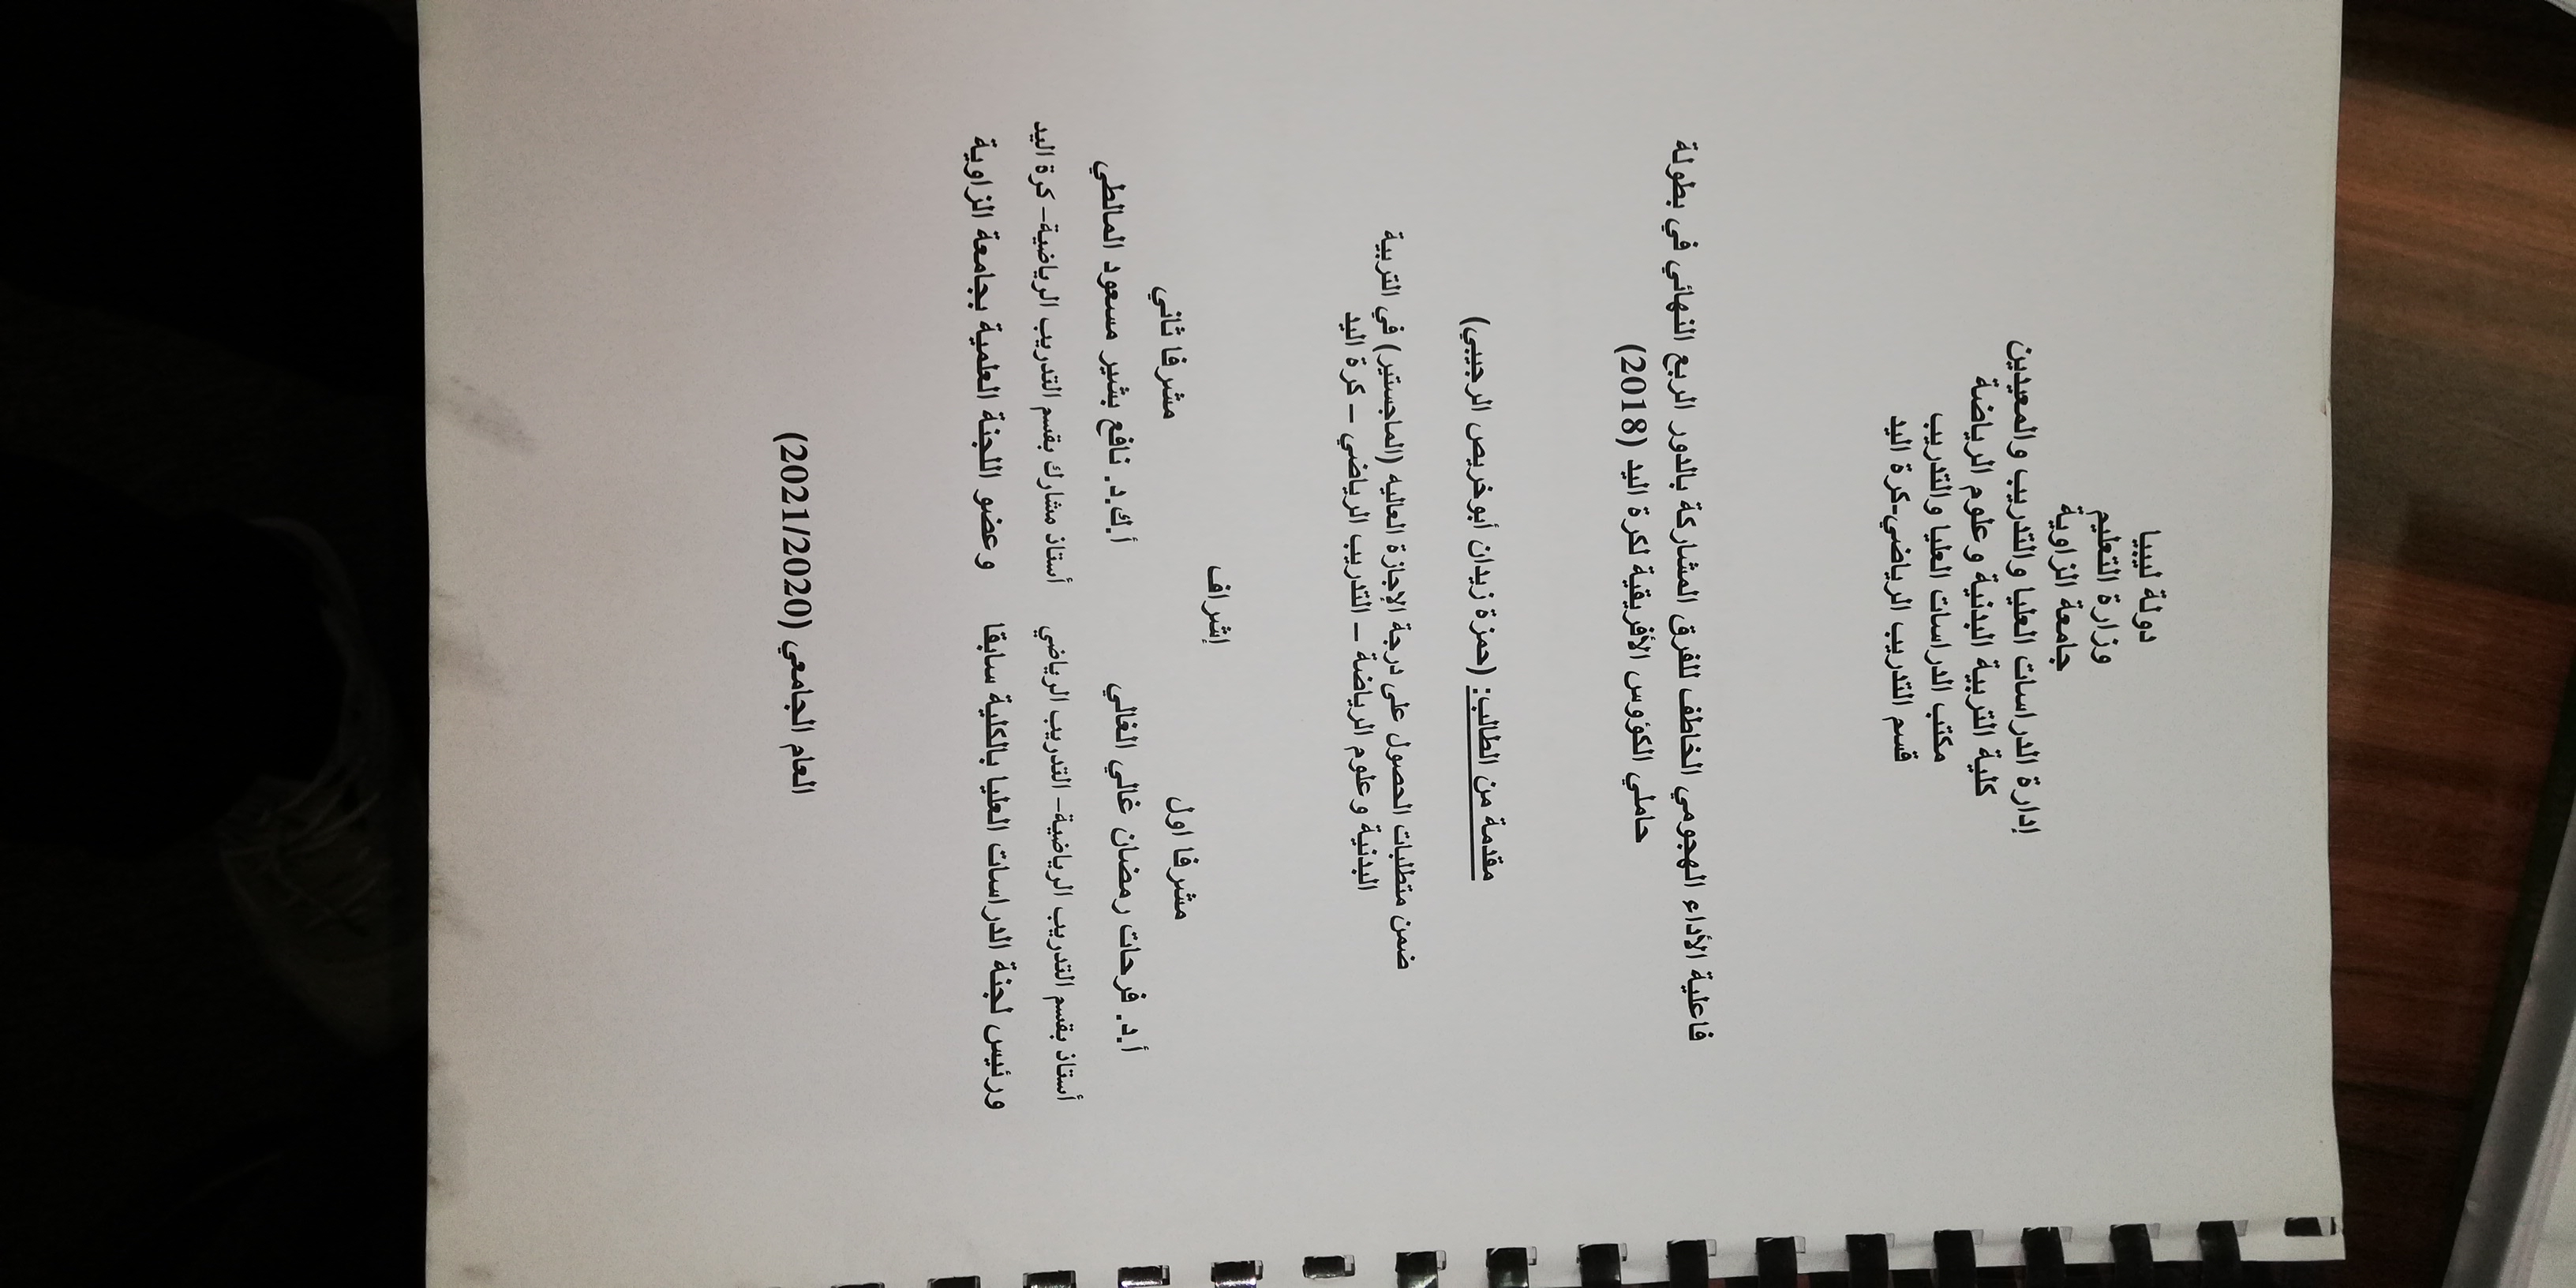 دولة ليبيا
وزارة التعليم
جامعة الزاوية
إدارة الدراسات العليا والتدريب والمعيدين
كلية التربية البدنية وعلوم الرياضة
مكتب الدراسات العليا والتدريب
قسم التدريب الرياضي-كرة اليد
فاعلية الأداء الهجومي الخاطف للفرق المشاركة بالدور الربع النهائي في بطولة
حاملي الكؤوس الأفريقية لكرة اليد (2018)
مقدمة من الطالب: (حمزة زيدان أبوخريص الرجيبي)
ضمن متطلبات الحصول على درجة الإجازة العاليه (الماجستير) في التربية
البدنية وعلوم الرياضة – التدريب الرياضي – كرة اليد
إشراف
مشرفا اول مشرفا ثاني
أ.د. فرحات رمضان غالي الغالي أ.ك.د. نافع بشير مسعود المالطي
أستاذ بقسم التدريب الرياضية– التدريب الرياضي أستاذ مشارك بقسم التدريب الرياضية– كرة اليد
ورئيس لجنة الدراسات العليا بالكلية سابقا وعضو اللجنة العلمية بجامعة الزاوية
العام الجامعي (2021/2020)